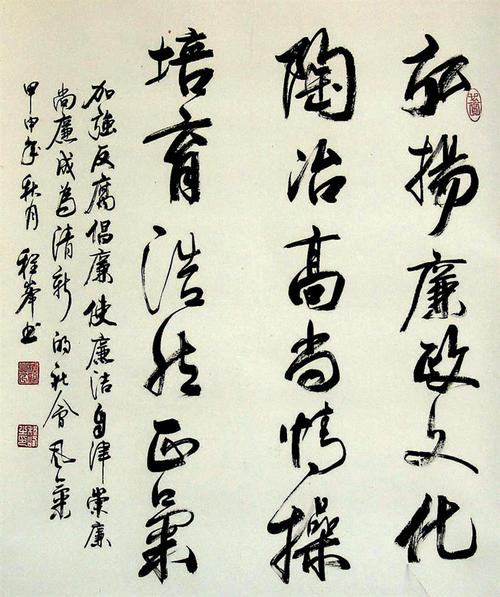 弘揚廉政文化
陶冶高尚情操
培育浩然正氣
加強反腐倡廉使廉洁自律崇廉
尚廉成為清新的社會風氣
甲申年秋月程峯书